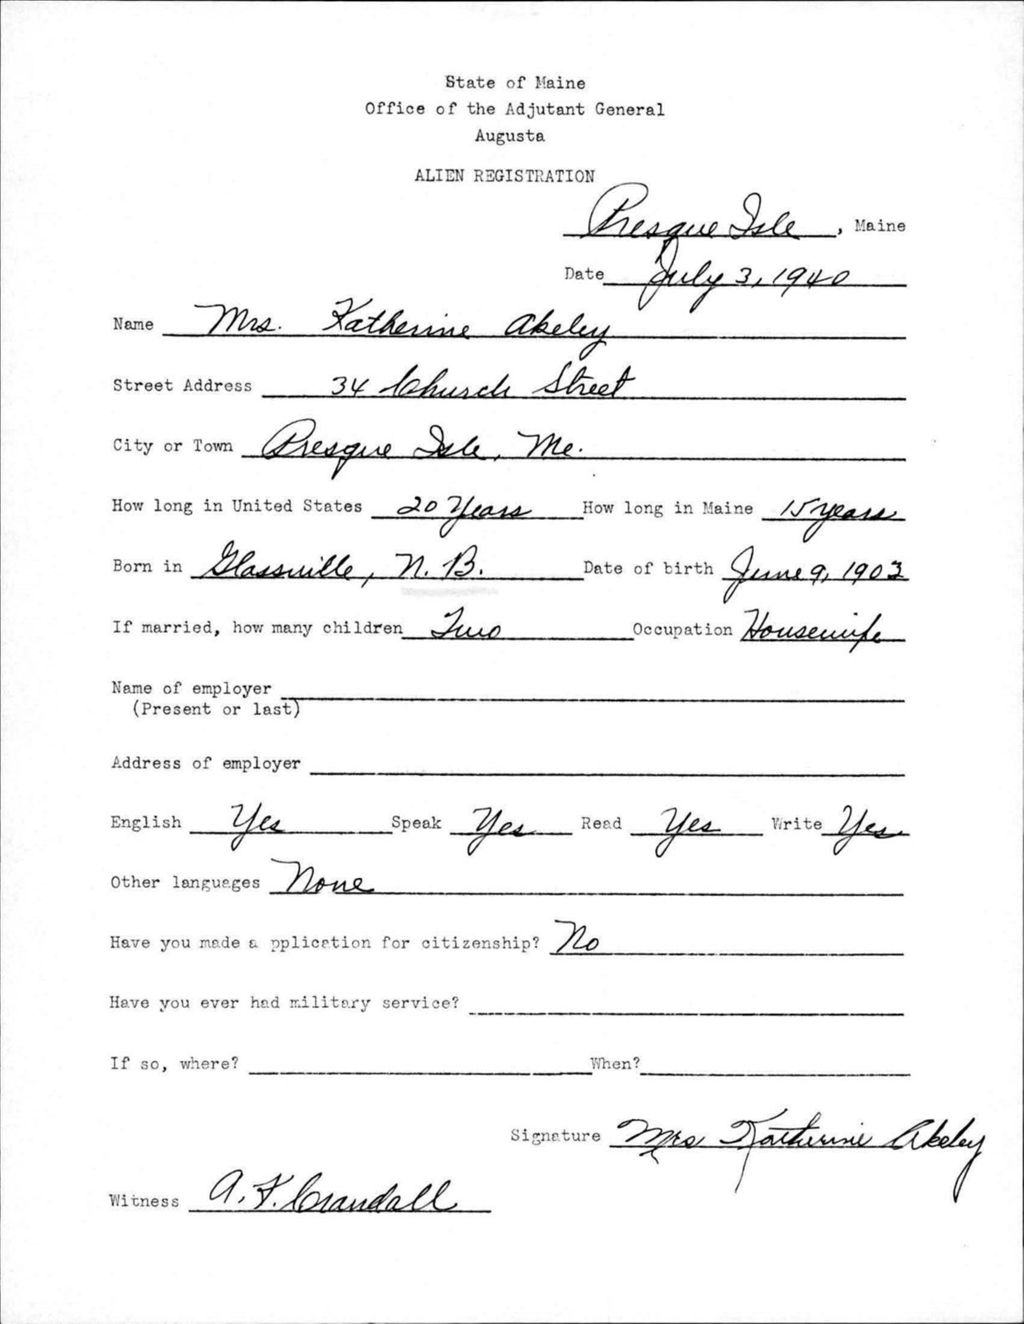 State of Maine
Office of the Adjutant General
Augusta
ALIEN REGISTRATION
Presque Isle, Maine
Date July 3, 1940
Name Mrs. Katherine Akeley
Street Address 34 Church Street
City or Town Presque Isle, Me.
How long in United States 20 Years How long in Maine 15 years
Born in Glassville, N. B. Date of birth June 9, 1903
If married, how many children Two Occupation Housewife
Name of employer
(Present or last)
Address of employer
English Yes Speak Yes Read Yes Write Yes
Other languages None
Have you made a pplication for citizenship? No
Have you ever had military service?
If so, where? When?
Signature Mrs Katherine Akeley
Witness A. F. Crandall